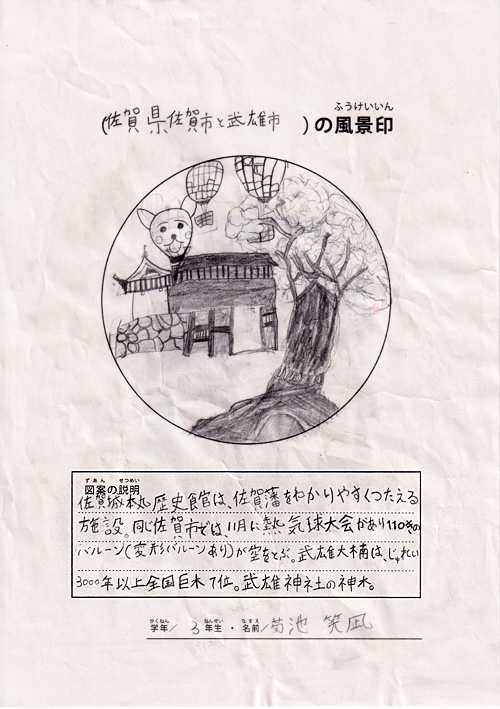 ふうけいいん
(佐賀県佐賀市と武雄市 )の風景印
ずあん せつめい
図案の説明
佐賀城本丸歴史館は、佐賀藩をわかりやすくつたえる
施設。同じ佐賀市では、11月に熱気球大会があり110きの
バルーン(変形バルーンあり)が空をとぶ。武雄大楠は、じゅれい
3000年以上全国巨木7位。武雄神社の神木。
がくねん ねんせい なまえ
学年/ 3年生・名前/菊池 笑凪